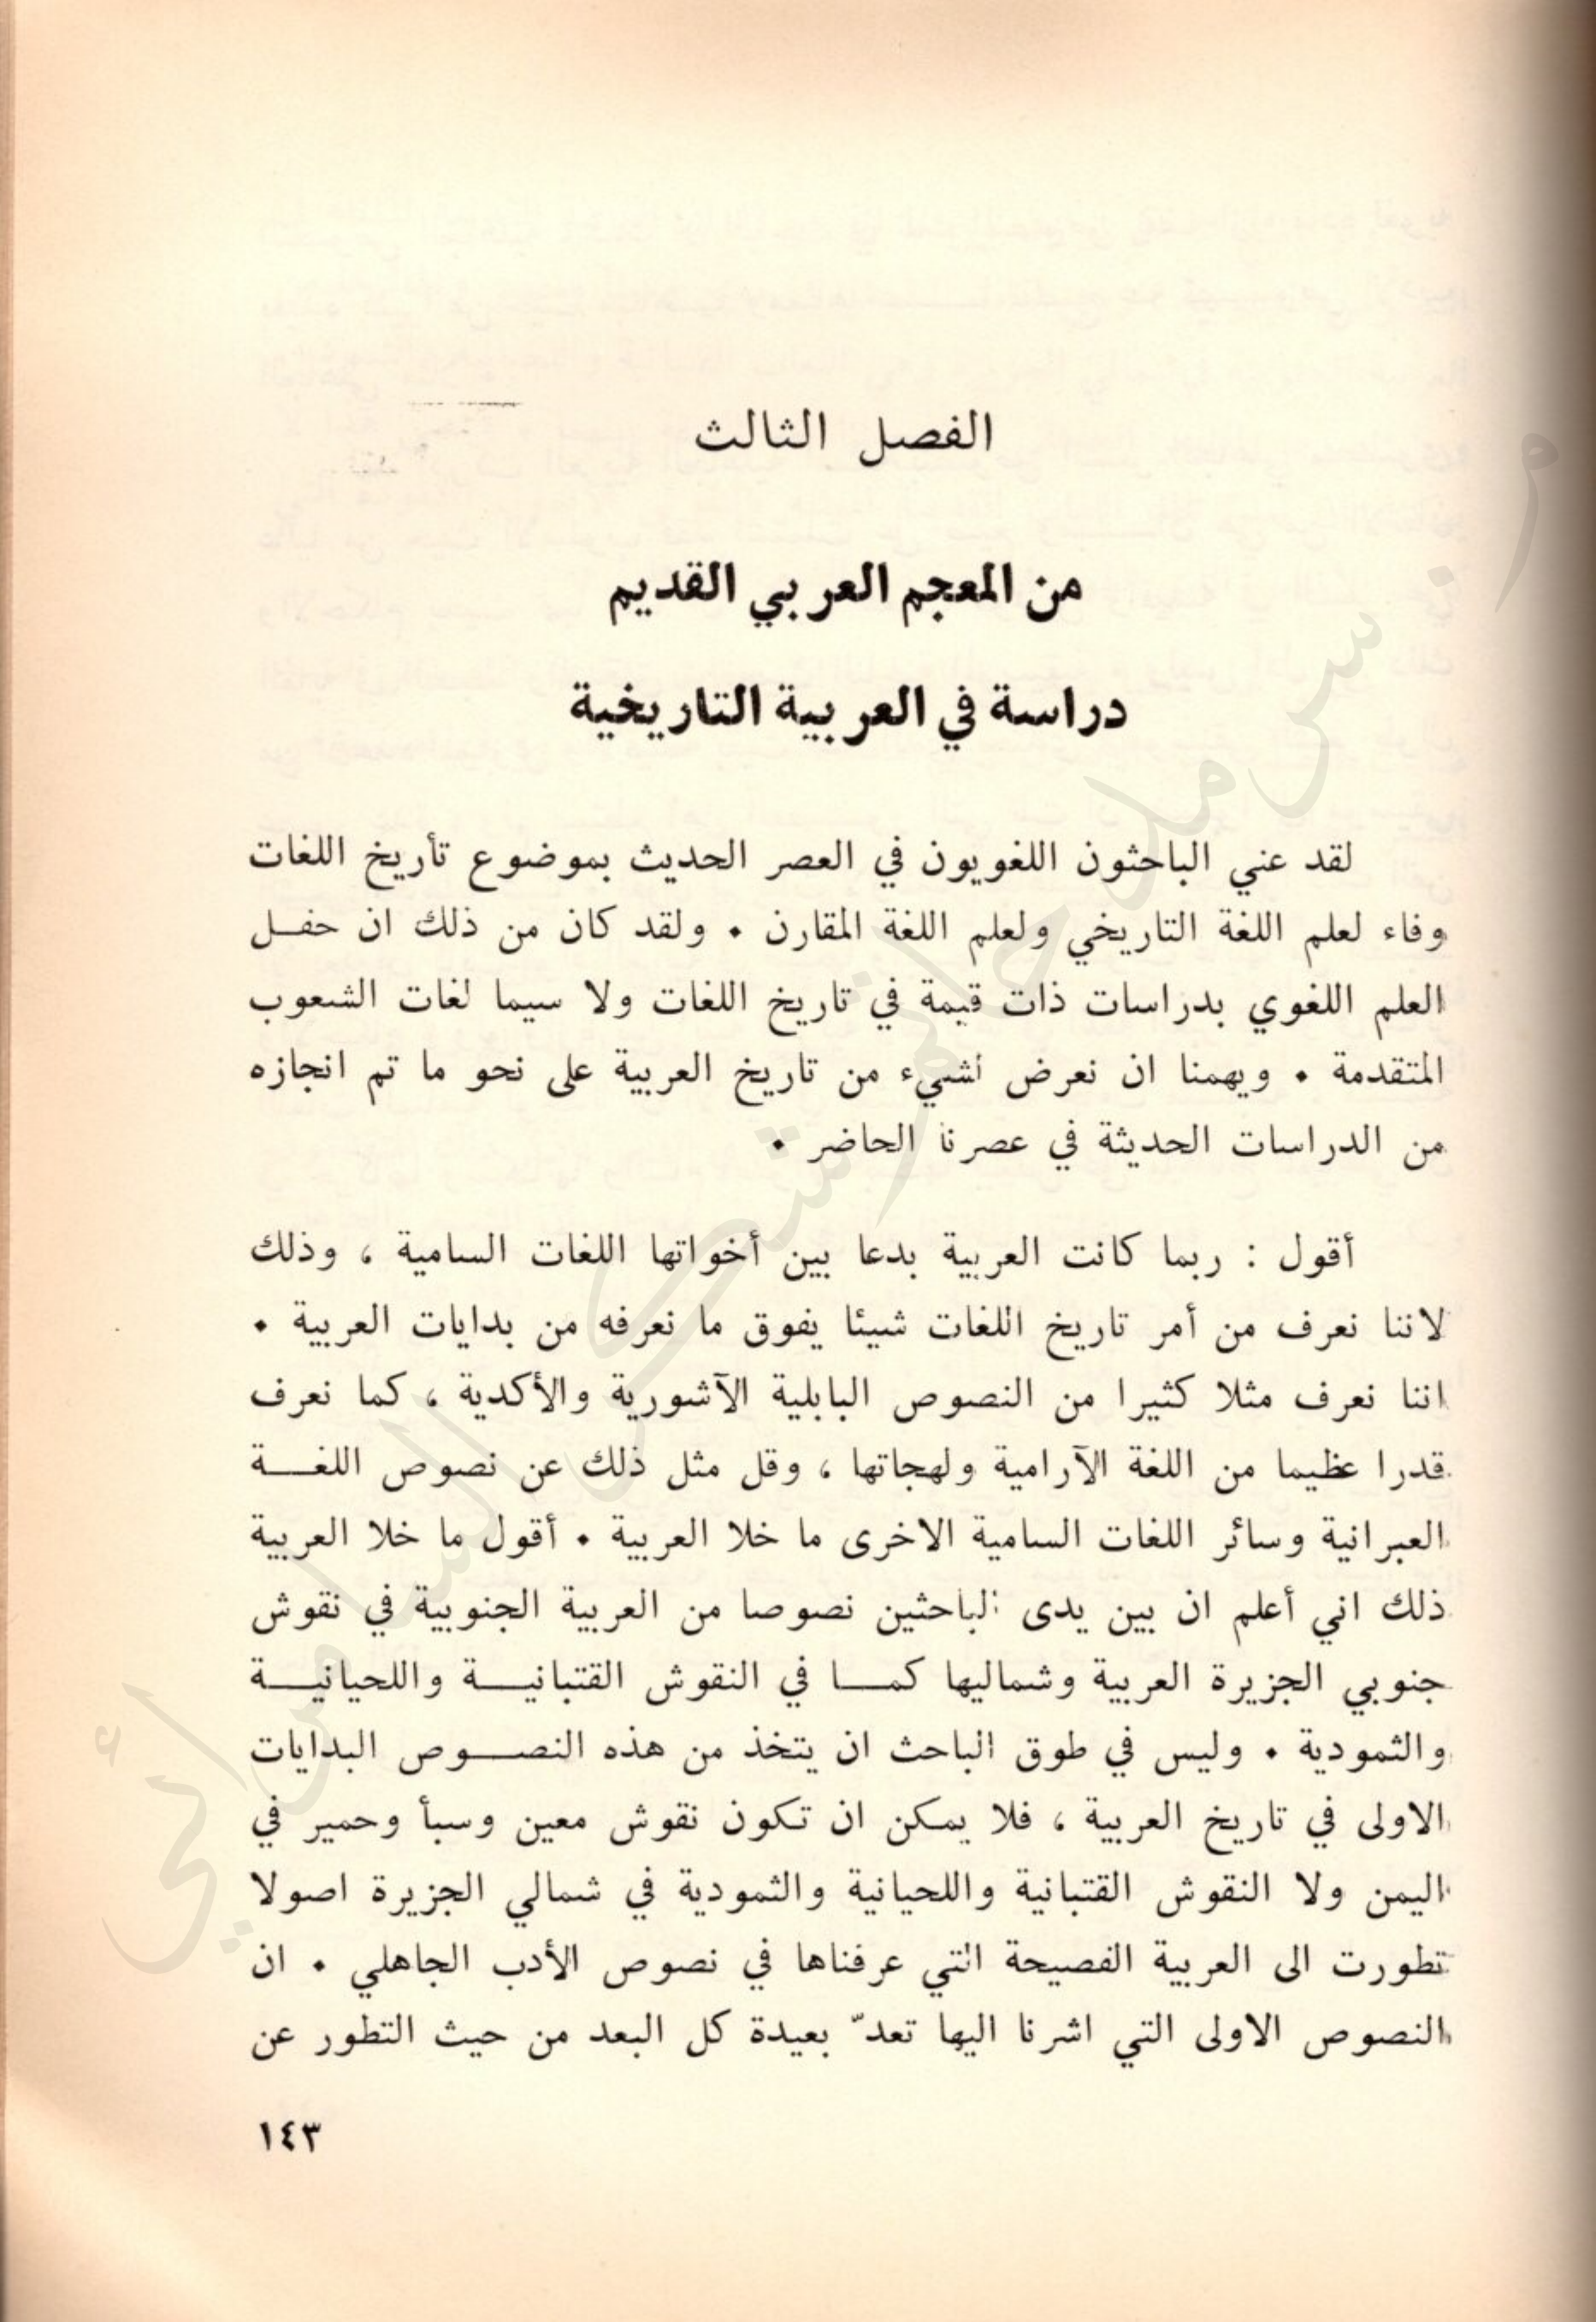 الفصل الثالث
من المعجم العربي القديم
دراسة في العربية التاريخية
لقد عني الباحثون اللغويون في العصر الحديث بموضوع تأريخ اللغات
وفاء لعلم اللغة التاريخي ولعلم اللغة المقارن . ولقد كان من ذلك ان حفل
العلم اللغوي بدراسات ذات قيمة في تاريخ اللغات ولا سيما لغات الشعوب
المتقدمة . ويهمنا ان نعرض لشيء من تاريخ العربية على نحو ما تم انجازه
من الدراسات الحديثة في عصرنا الحاضر .
أقول : ربما كانت العربية بدعا بين أخواتها اللغات السامية ، وذلك
لاننا نعرف من أمر تاريخ اللغات شيئا يفوق ما نعرفه من بدايات العربية .
اننا نعرف مثلا كثيرا من النصوص البابلية الآشورية والأكدية ، كما نعرف
قدرا عظيما من اللغة الآرامية ولهجاتها ، وقل مثل ذلك عن نصوص اللغة
العبرانية وسائر اللغات السامية الاخرى ما خلا العربية . أقول ما خلا العربية
ذلك اني أعلم ان بين يدى الباحثين نصوصا من العربية الجنوبية في نقوش
جنوبي الجزيرة العربية وشماليها كما في النقوش القتبانية واللحيانية
والثمودية . وليس في طوق الباحث ان يتخذ من هذه النصوص البدايات
الاولى في تاريخ العربية ، فلا يمكن ان تكون نقوش معين وسبأ وحمير في
اليمن ولا النقوش القتبانية واللحيانية والثمودية في شمالي الجزيرة اصولا
تطورت الى العربية الفصيحة التي عرفناها في نصوص الأدب الجاهلي . ان
النصوص الاولى التي اشرنا اليها تعدّ بعيدة كل البعد من حيث التطور عن
١٤٣